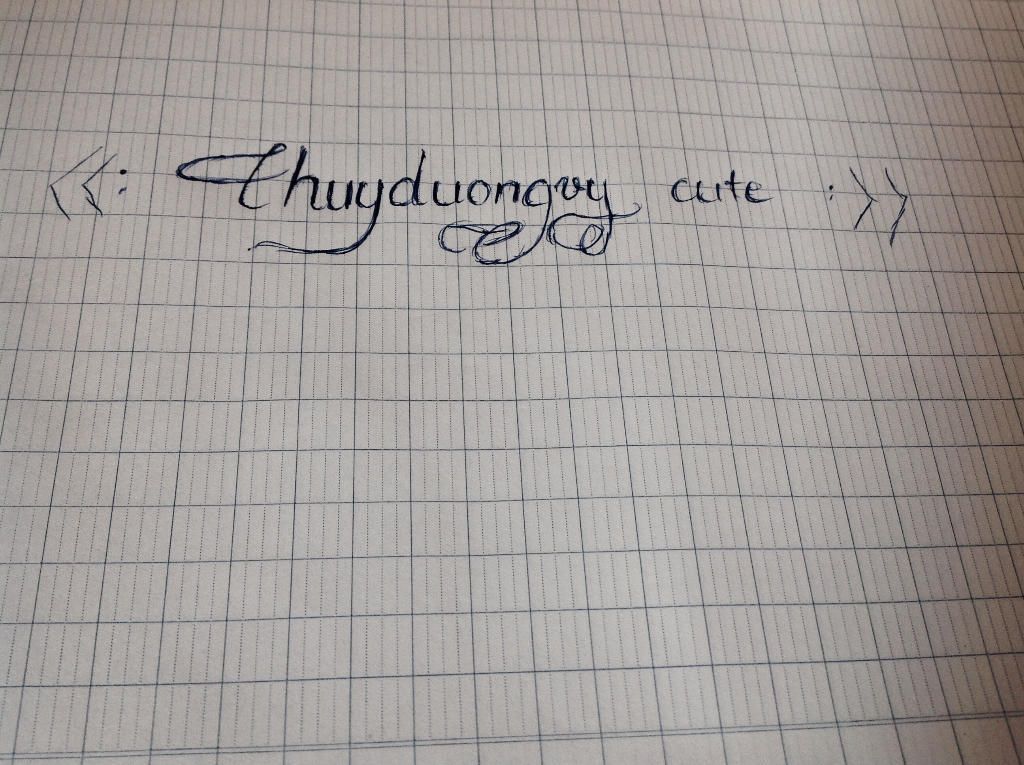 <<: thuyduongvy cute :>>